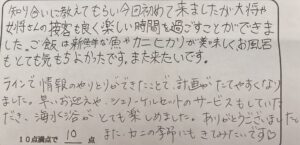 知り合いに教えてもらい今回初めて来ましたが大将や
女将さんの接客も良く楽しい時間を過ごすことができま
した。ご飯は新鮮な魚やカニヒカリが美味しくお風呂
もとても気もちよかったです。また来たいです。
ラインで情報のやりとりができたことで、計画がたてやすくなり
ました。早くお迎えや、シュノーケルセットのサービスもしていた
だき、海水浴がとても楽しめました。ありがとうございました
10点満点で 10 点
また、カニの季節にもきてみたいです♡